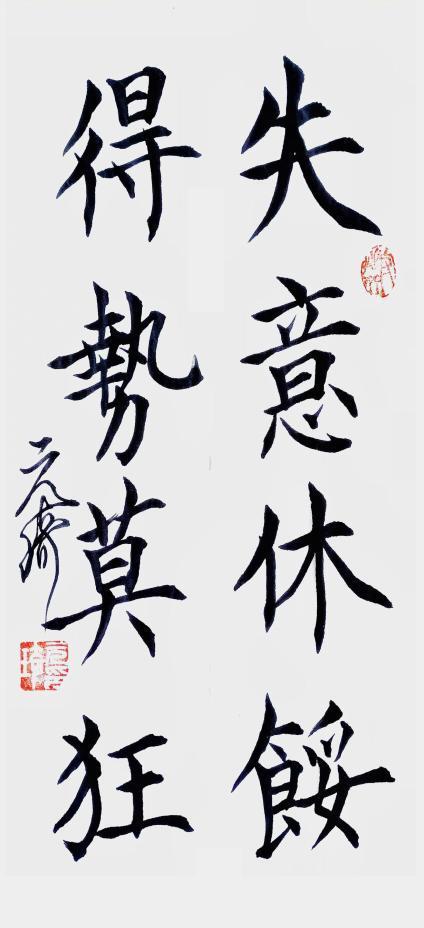 失意休餒
得勢莫狂